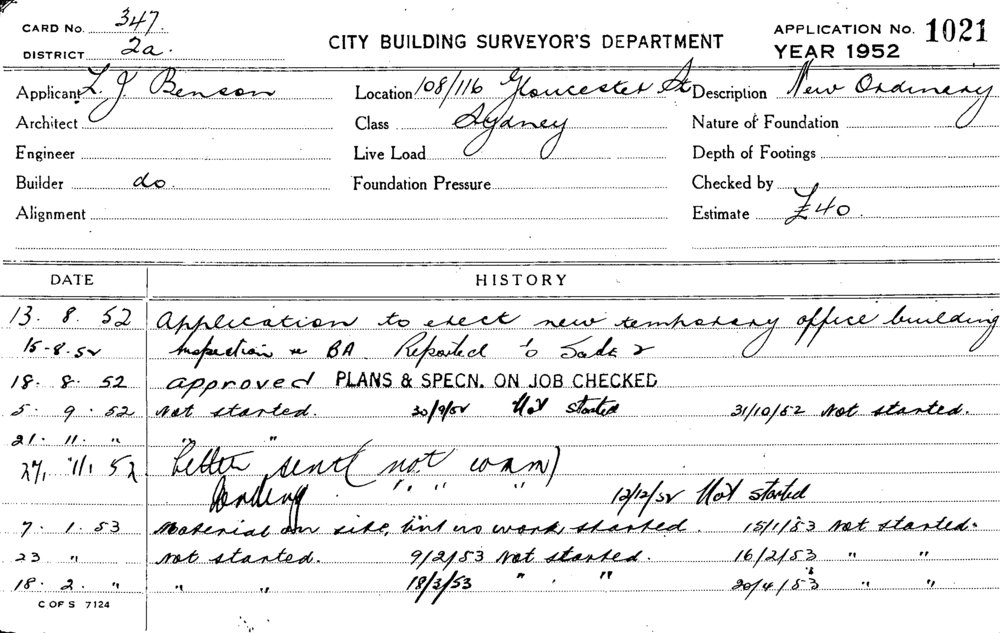 CARD No. 347.
DISTRICT 2a.
CITY BUILDING SURVEYOR'S DEPARTMENT
APPLICATION No. 1021
YEAR 1952
Applicant L. J Benson
Location 108/116 Gloucester St
Description New Ordinery
Architect
Class Sydney
Nature of Foundation
Engineer
Live Load
Depth of Footings
Builder do.
Foundation Pressure
Checked by
Alignment
Estimate £40.
DATE HISTORY
13. 8. 52 Application to erect new temporary office building
15-8-52 Inspection re BA. Reported to
18. 8. 52 approved PLANS & SPECN. ON JOB CHECKED
5. 9. 52 Not started. 30/9/52 Not started 31/10/52 Not started.
21. 11. " " "
27. 11. 52 Letter sent (not comm)
" " " 12/12/52 Not started
7. 1. 53 Material on site, but no work started. 15/1/53 Not started.
23 " Not started. 9/2/53 Not started. 16/2/53 " "
18. 2. " " " 18/3/53 " " 20/4/53 " "
C OF S 7124